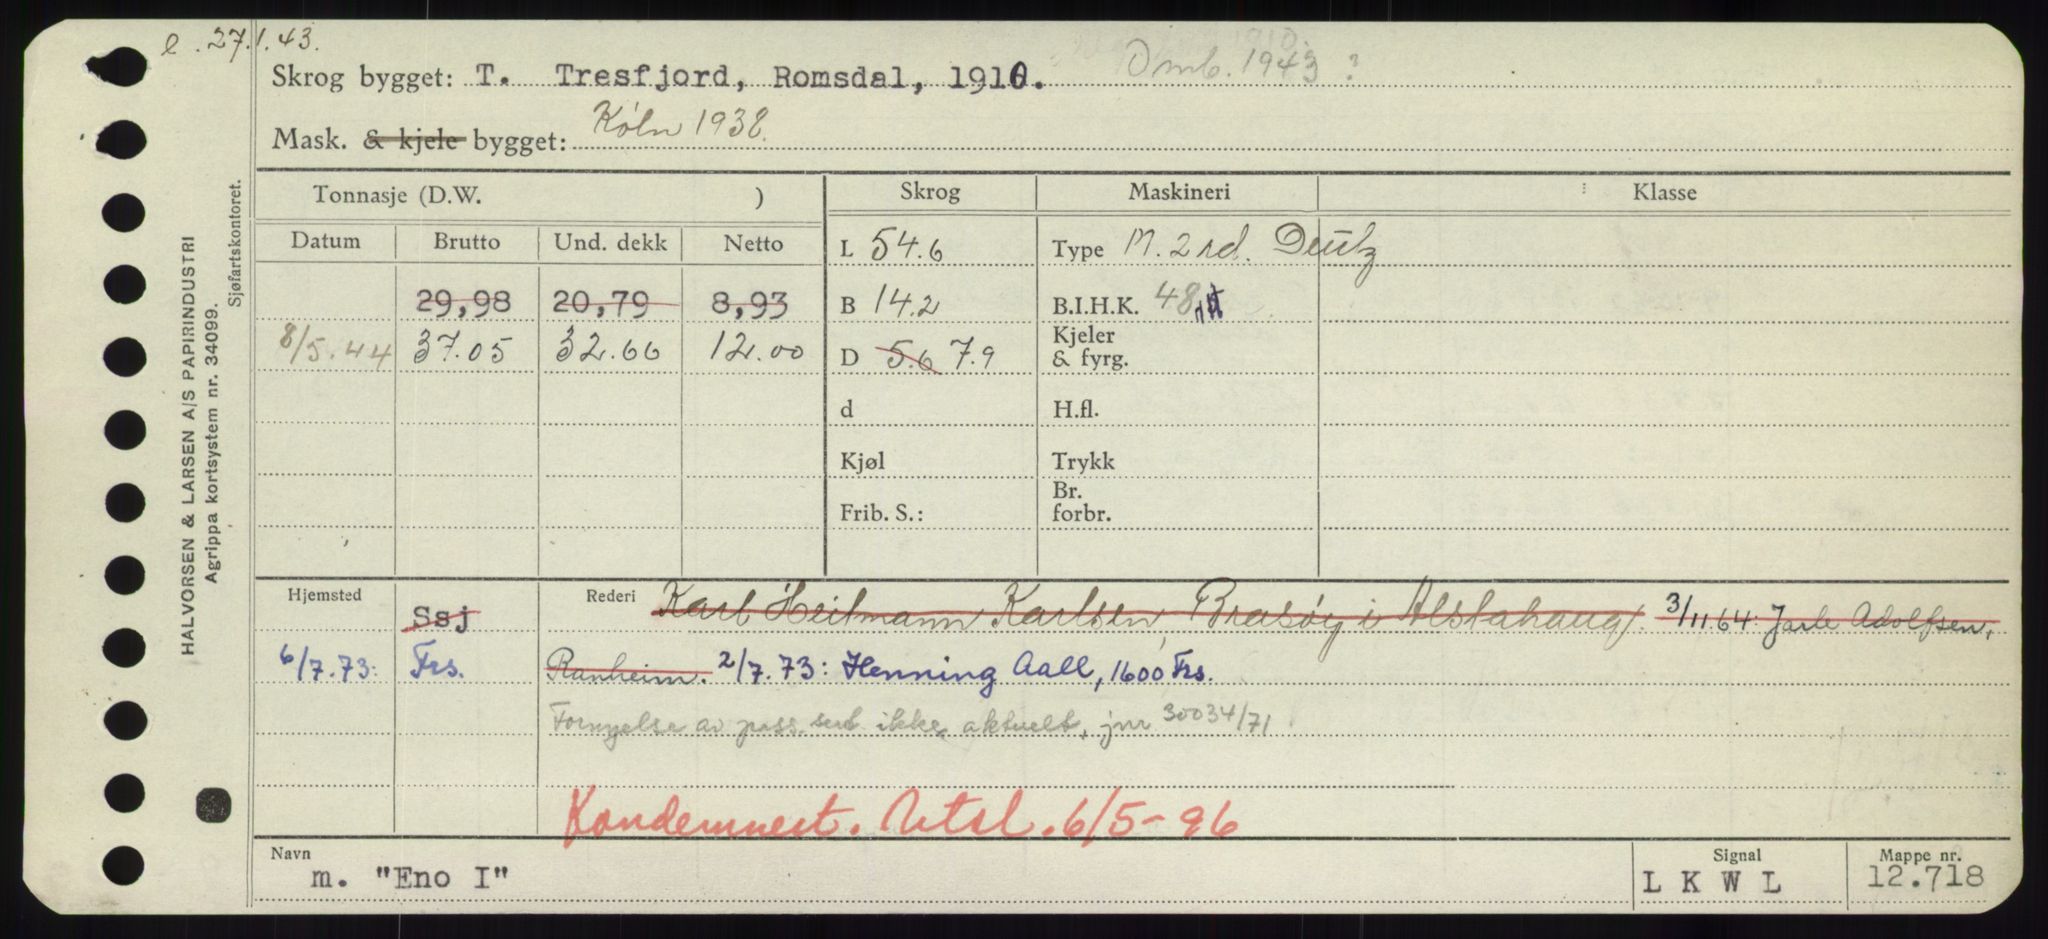 e. 27.1.43.
Skrog bygget: T. Tresfjord, Romsdal, 1910. Omb. 1943 ?
Mask. & kjele bygget: Köln 1938.
Tonnasje (D.W. ) Skrog Maskineri Klasse
Datum Brutto Und. dekk Netto L 54.6 Type M. 2 rd. Deutz
29,98 20,79 8,93 B 14.2 B.I.H.K. 48
8/5.44 37.05 32.66 12.00 D 5.6 7.9 Kjeler & fyrg.
d H.fl.
Kjøl Trykk
Frib. S.: Br. forbr.
Hjemsted Ssj Rederi Karl Heitmann Karlsen, Brasøy i Alstahaug. 3/11 64: Jarle Adolfsen,
6/7.73: Frs. Ranheim. 2/7.73: Henning Aall, 1600 Frs.
Fornyelse av pass. sert ikke aktuelt, jnr 30034/71
Kondemnert. Utsl. 6/5-96
Navn Signal Mappe nr.
m. "Eno I" L K W L 12.718
HALVORSEN & LARSEN A/S PAPIRINDUSTRI
Agrippa kortsystem nr. 34099.
Sjøfartskontoret.